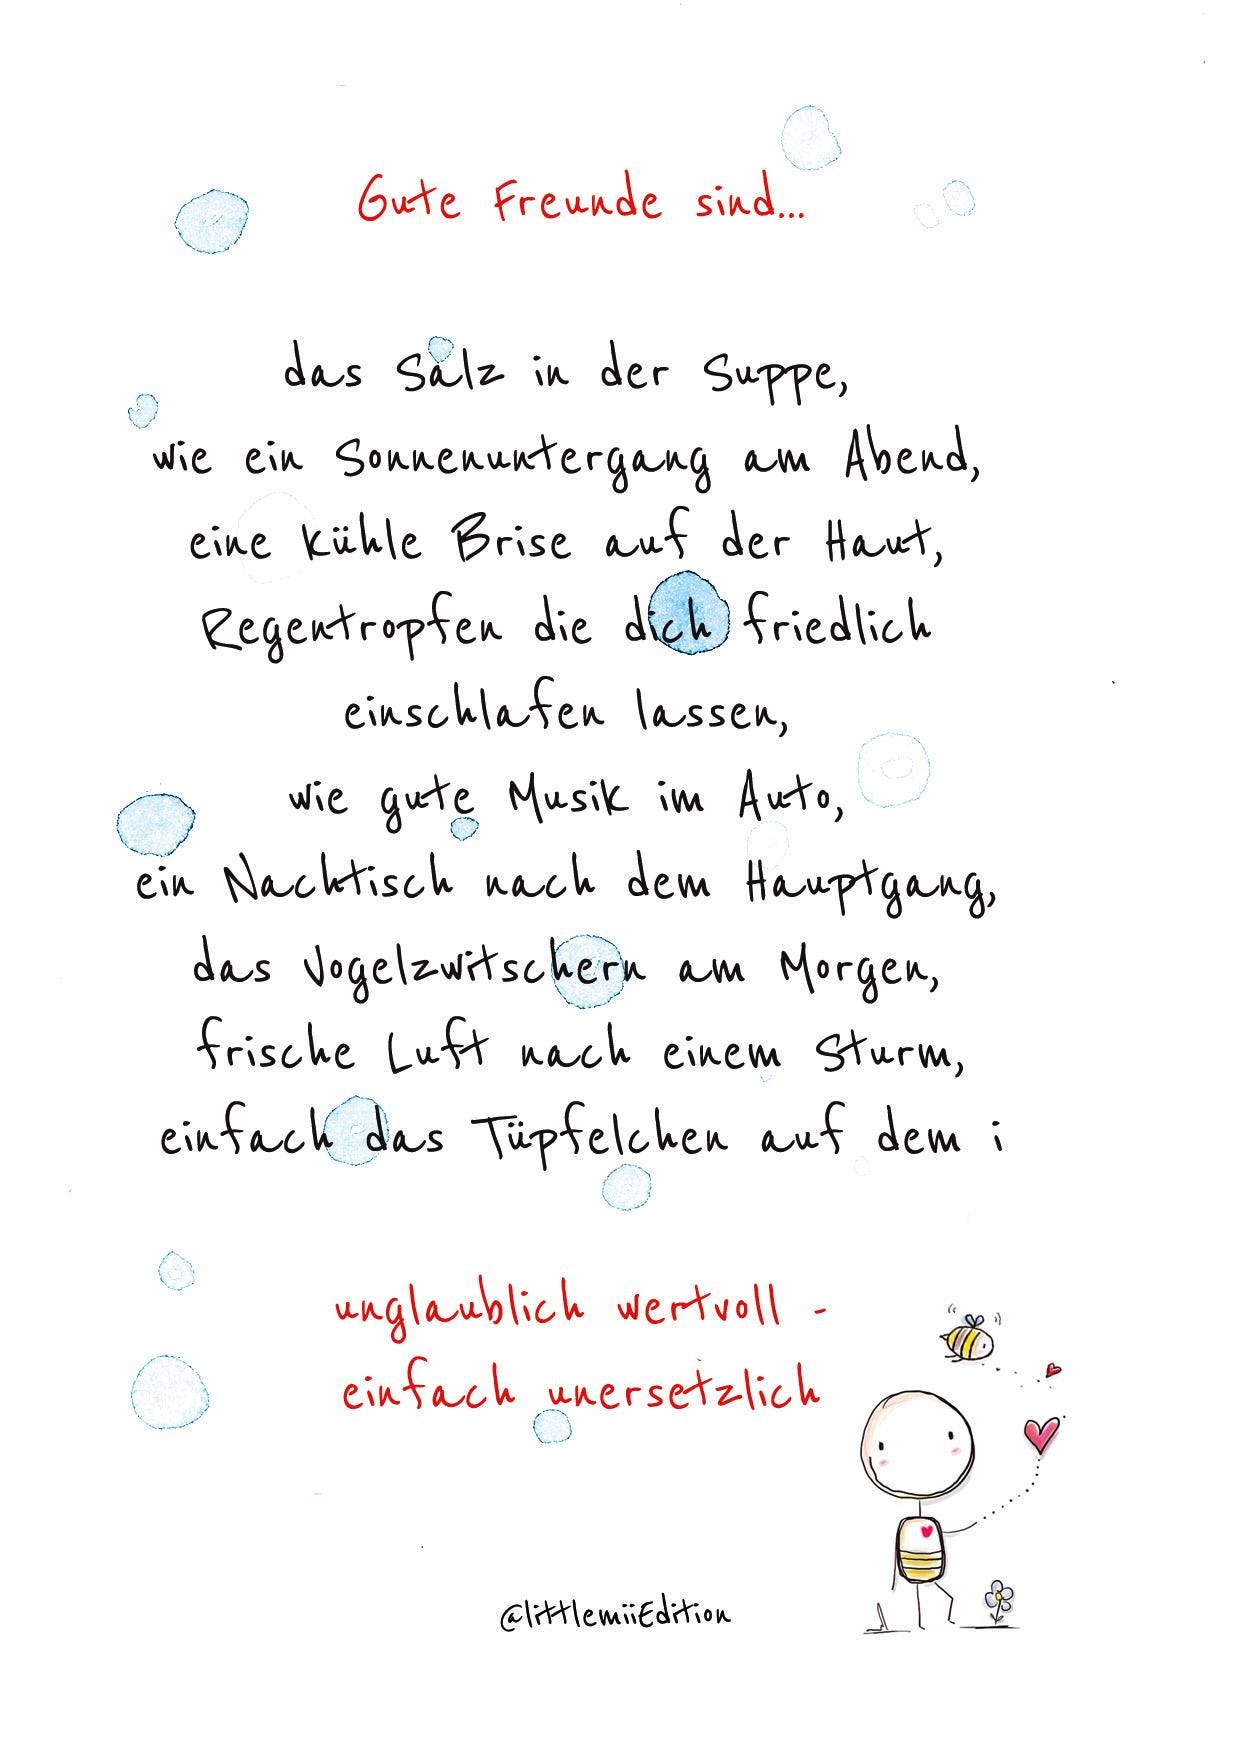 Gute Freunde sind...
das Salz in der Suppe,
wie ein Sonnenuntergang am Abend,
eine kühle Brise auf der Haut,
Regentropfen die dich friedlich
einschlafen lassen,
wie gute Musik im Auto,
ein Nachtisch nach dem Hauptgang,
das Vogelzwitschern am Morgen,
frische Luft nach einem Sturm,
einfach das Tüpfelchen auf dem i
unglaublich wertvoll -
einfach unersetzlich
@littlemiiEdition